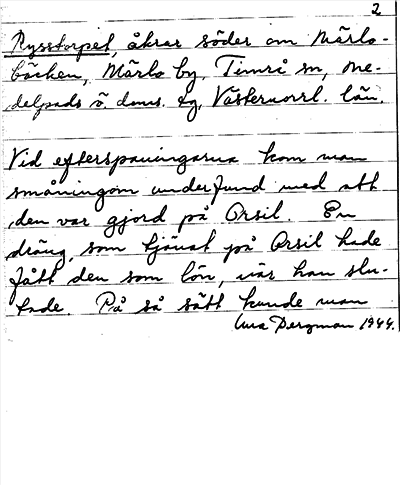 2
Rysstorpet, åkrar söder om Märlo-
bäcken, Märlo by, Timrå sn, Me-
delpads ö. doms. tg, Västernorrl. län.
Vid efterspaningarna kom man
småningom underfund med att
den var gjord på Orsil. En
dräng, som tjänat på Orsil hade
fått den som lön, när han slu-
tade. På så sätt kunde man
Bergman 1944.